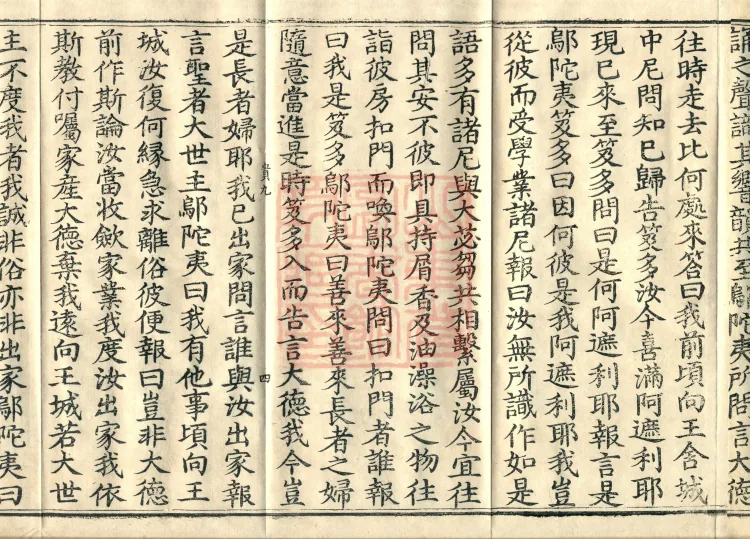 誦之聲諳其響韻共至鄔陀夷所問言大德
往時走去比何處來答曰我前頃向王舍城
中尼問知已歸告笈多汝今喜滿阿遮利耶
現已來至笈多問曰是何阿遮利耶報言是
鄔陀夷笈多曰因何彼是我阿遮利耶我豈
從彼而受學業諸尼報曰汝無所識作如是
語多有諸尼與大苾芻共相繫屬汝今宜往
問其安不彼即具持屑香及油澡浴之物往
詣彼房扣門而喚鄔陀夷問曰扣門者誰報
曰我是笈多鄔陀夷曰善來善來長者之婦
隨意當進是時笈多入而告言大德我今豈
貴九 四
是長者婦耶我已出家問言誰與汝出家報
言聖者大世主鄔陀夷曰我有他事頃向王
城汝復何緣急求離俗彼便報曰豈非大德
前作斯論汝當收斂家業我度汝出家我依
斯教付囑家産大德棄我遠向王城若大世
主不度我者我誠非俗亦非出家鄔陀夷曰